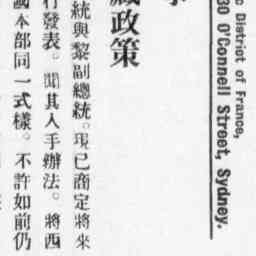 c District of France,
30 O'Connell Street, Sydney.
藏政策
統與黎副總統。現已商定將來
行發表。聞其入手辦法。將西
國本部同一式樣。不許如前仍